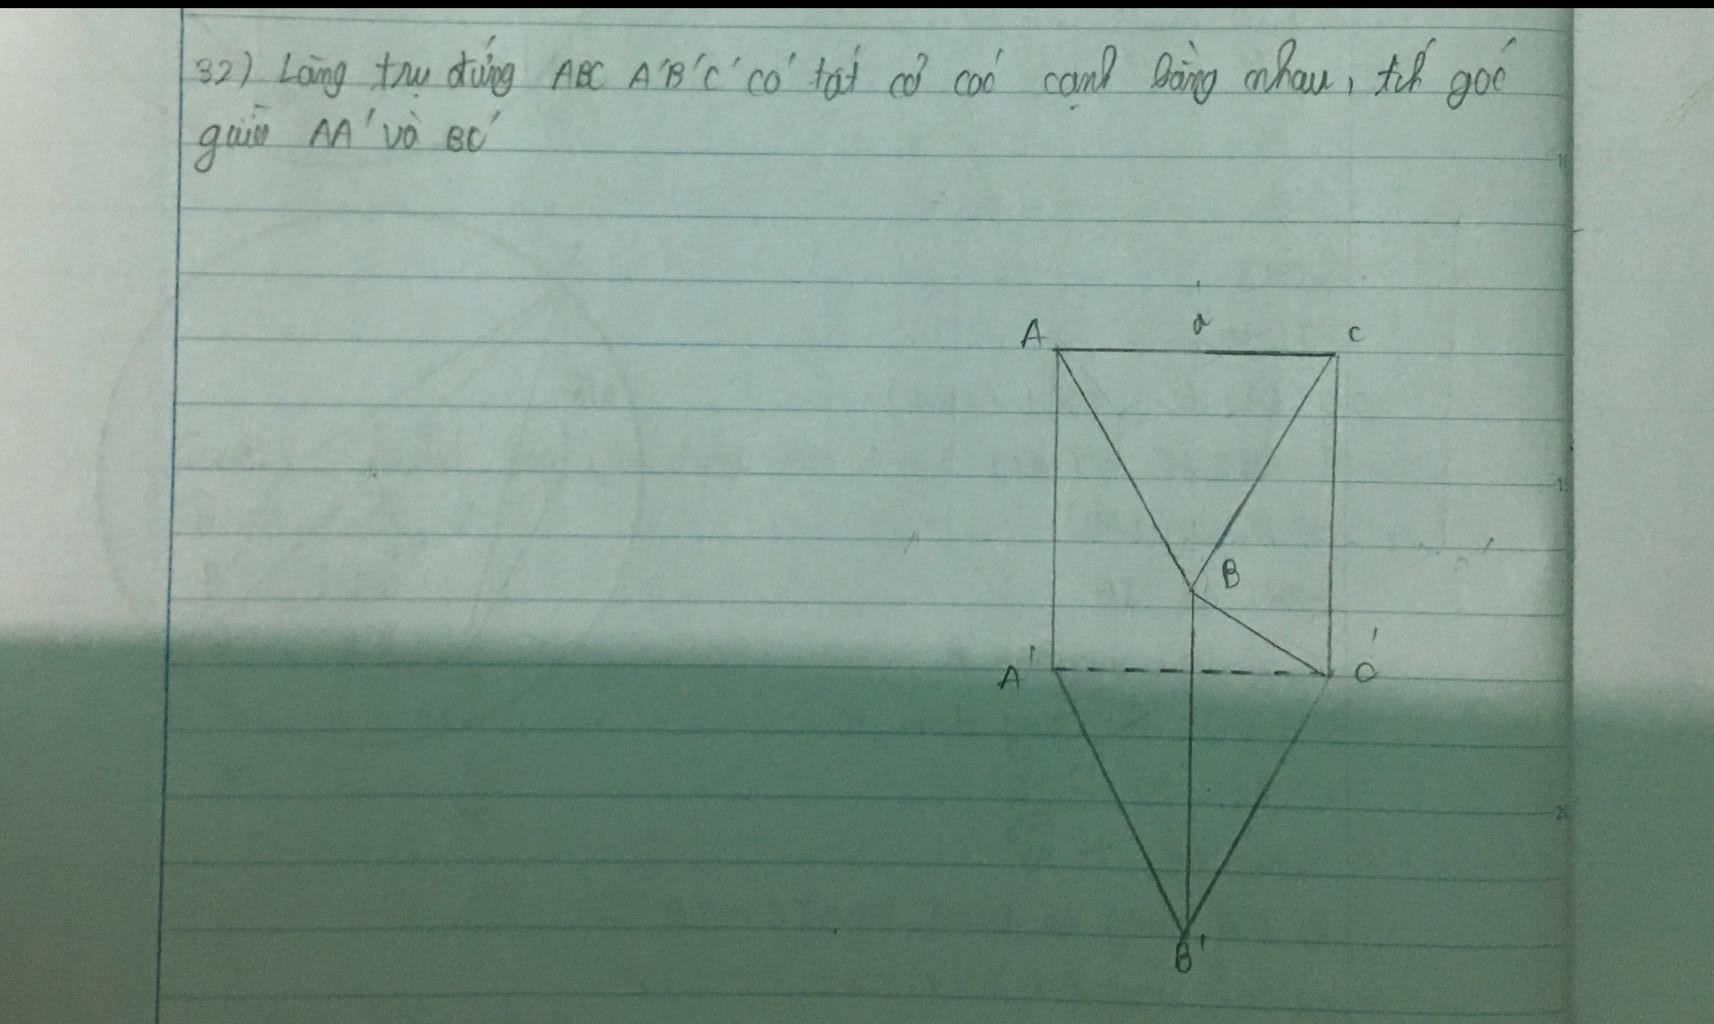 32) Lăng trụ đứng ABC A'B'C' có tất cả các cạnh bằng nhau, tính góc
giữa AA' và BC'
a
A
C
B
A'
C'
B'
10
15
20